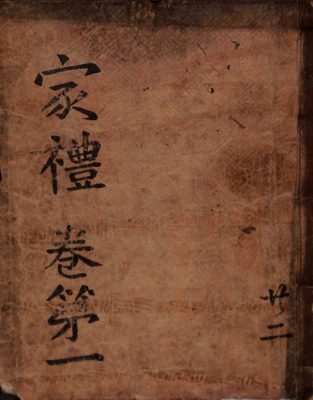 家禮 卷第一
廿二